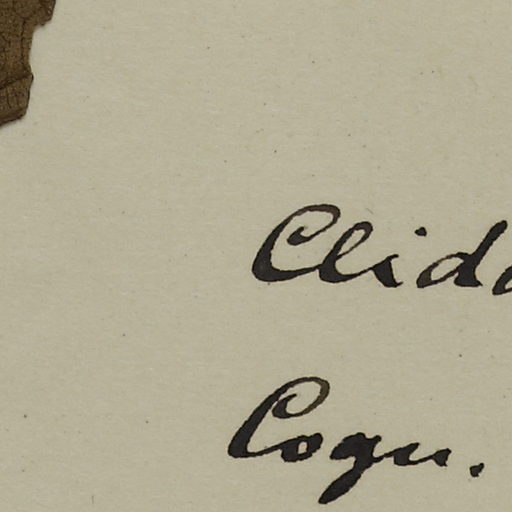 Clid
Cogn.